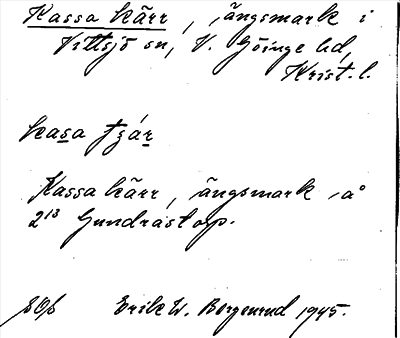 Kassa kärr, ängsmark i
Vittsjö sn, V. Göinge hd,
Krist. l.
kasa
Kassa kärr, ängsmark å
2¹³ Gundrastorp.
Erik W. Bergenrud 1945.